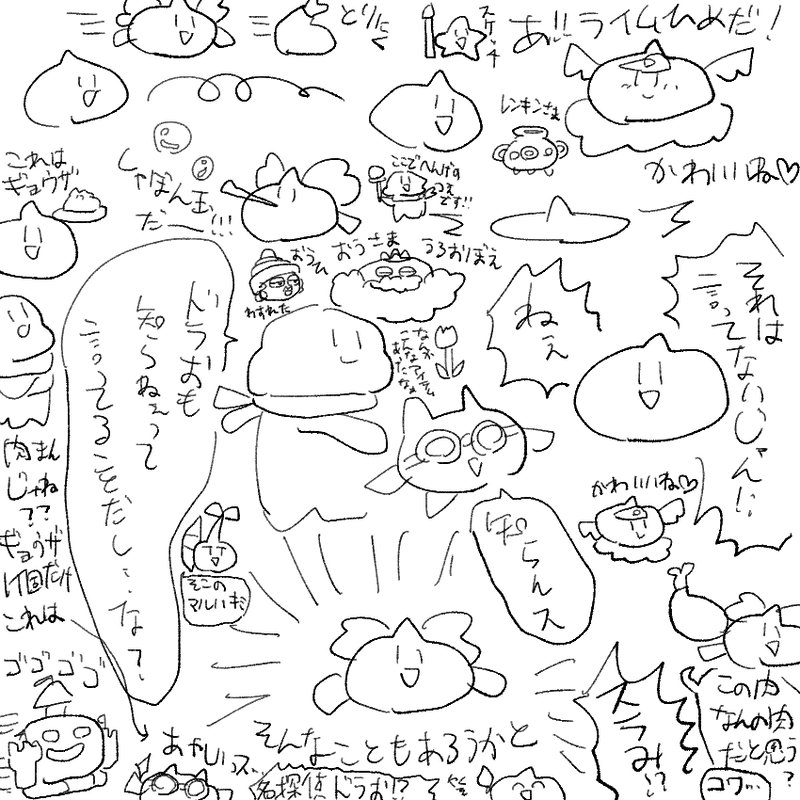 とりた
スケッチ
あ!!ライムひめだ!
レンキンさま
かわいいね♡
これは
ギョウザ
しゃぼん玉
だー!!!
ここでへんげの
つえ
です!!
おうさま
うろおぼえ
わすれた
ドラおも
知らねぇって
言ってることだし…な?
なんか
こんなアイテム
あったなぁ
ねぇ
それは
言ってないじゃん!!
かわいいね♡
知らんス
肉まん
じゃね
??
ギョウザ
1個だけ
これは
そこの
マルハギ
ゴゴゴゴ
あやしいっス…
そんなこともあるうかと
名探偵ドラお!?
スラみ!?
この肉
なんの肉
だと思う
?
コワッ…